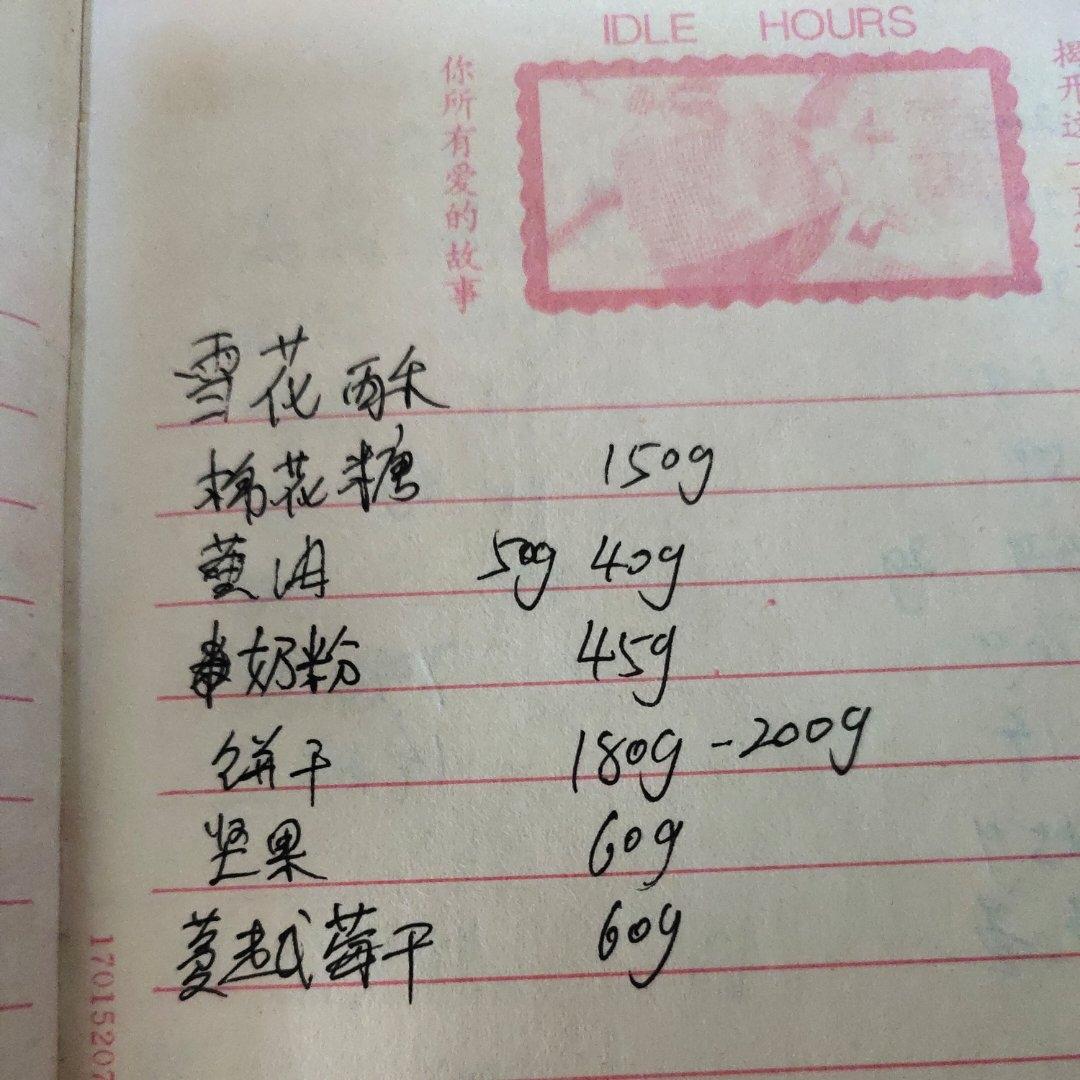 IDLE HOURS
你所有爱的故事
雪花酥
棉花糖 150g
黄油 50g 40g
奶粉 45g
饼干 180g-200g
坚果 60g
蔓越莓干 60g
1701520